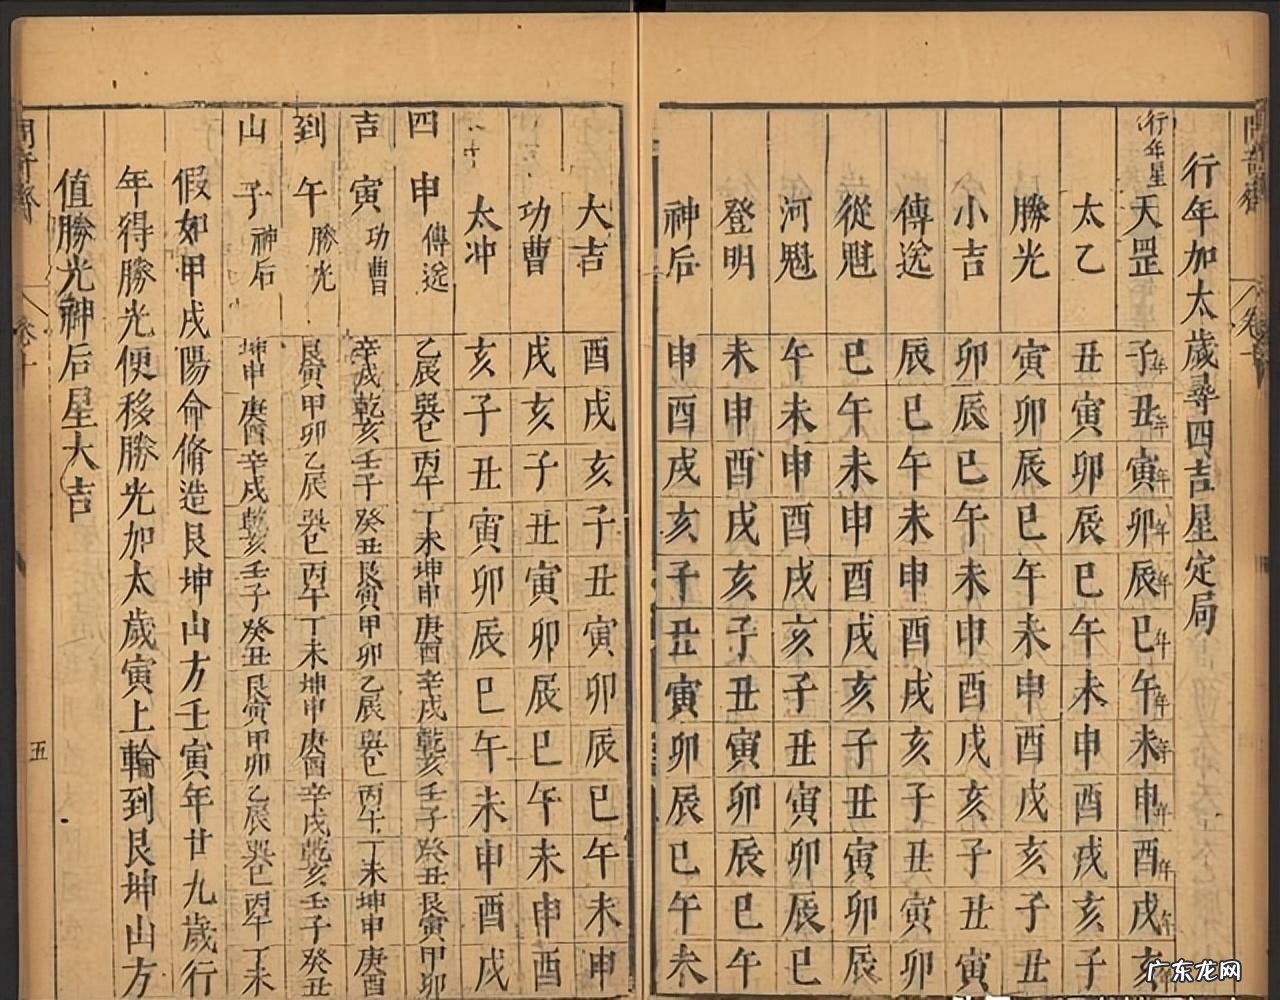 行年加太歲尋四吉星定局
行年星 天罡 子年 丑年 寅年 卯年 辰年 巳年 午年 未年 申年 酉年 戌年 亥
太乙 丑 寅 卯 辰 巳 午 未 申 酉 戌 亥 子
勝光 寅 卯 辰 巳 午 未 申 酉 戌 亥 子 丑
小吉 卯 辰 巳 午 未 申 酉 戌 亥 子 丑 寅
傳送 辰 巳 午 未 申 酉 戌 亥 子 丑 寅 卯
從魁 巳 午 未 申 酉 戌 亥 子 丑 寅 卯 辰
河魁 午 未 申 酉 戌 亥 子 丑 寅 卯 辰 巳
登明 未 申 酉 戌 亥 子 丑 寅 卯 辰 巳 午
神后 申 酉 戌 亥 子 丑 寅 卯 辰 巳 午 未
大吉 酉 戌 亥 子 丑 寅 卯 辰 巳 午 未 申
功曹 戌 亥 子 丑 寅 卯 辰 巳 午 未 申 酉
太冲 亥 子 丑 寅 卯 辰 巳 午 未 申 酉 戌
四 申 傳送 乙辰 巽巳 丙午 丁未 坤申 庚酉 辛戌 乾亥 壬子 癸丑 艮寅 甲卯
吉 寅 功曹 辛戌 乾亥 壬子 癸丑 艮寅 甲卯 乙辰 巽巳 丙午 丁未 坤申 庚酉
到 午 勝光 艮寅 甲卯 乙辰 巽巳 丙午 丁未 坤申 庚酉 辛戌 乾亥 壬子 癸丑
山 子 神后 坤申 庚酉 辛戌 乾亥 壬子 癸丑 艮寅 甲卯 乙辰 巽巳 丙午 丁未
假如甲戌陽命脩造艮坤山方壬寅年廿九歲行
年得勝光便移勝光加太歲寅上輪到艮坤山方
值勝光神后星大吉
卷十 五
广东龙网